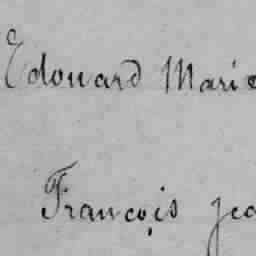 Edouard Marie
François Jea